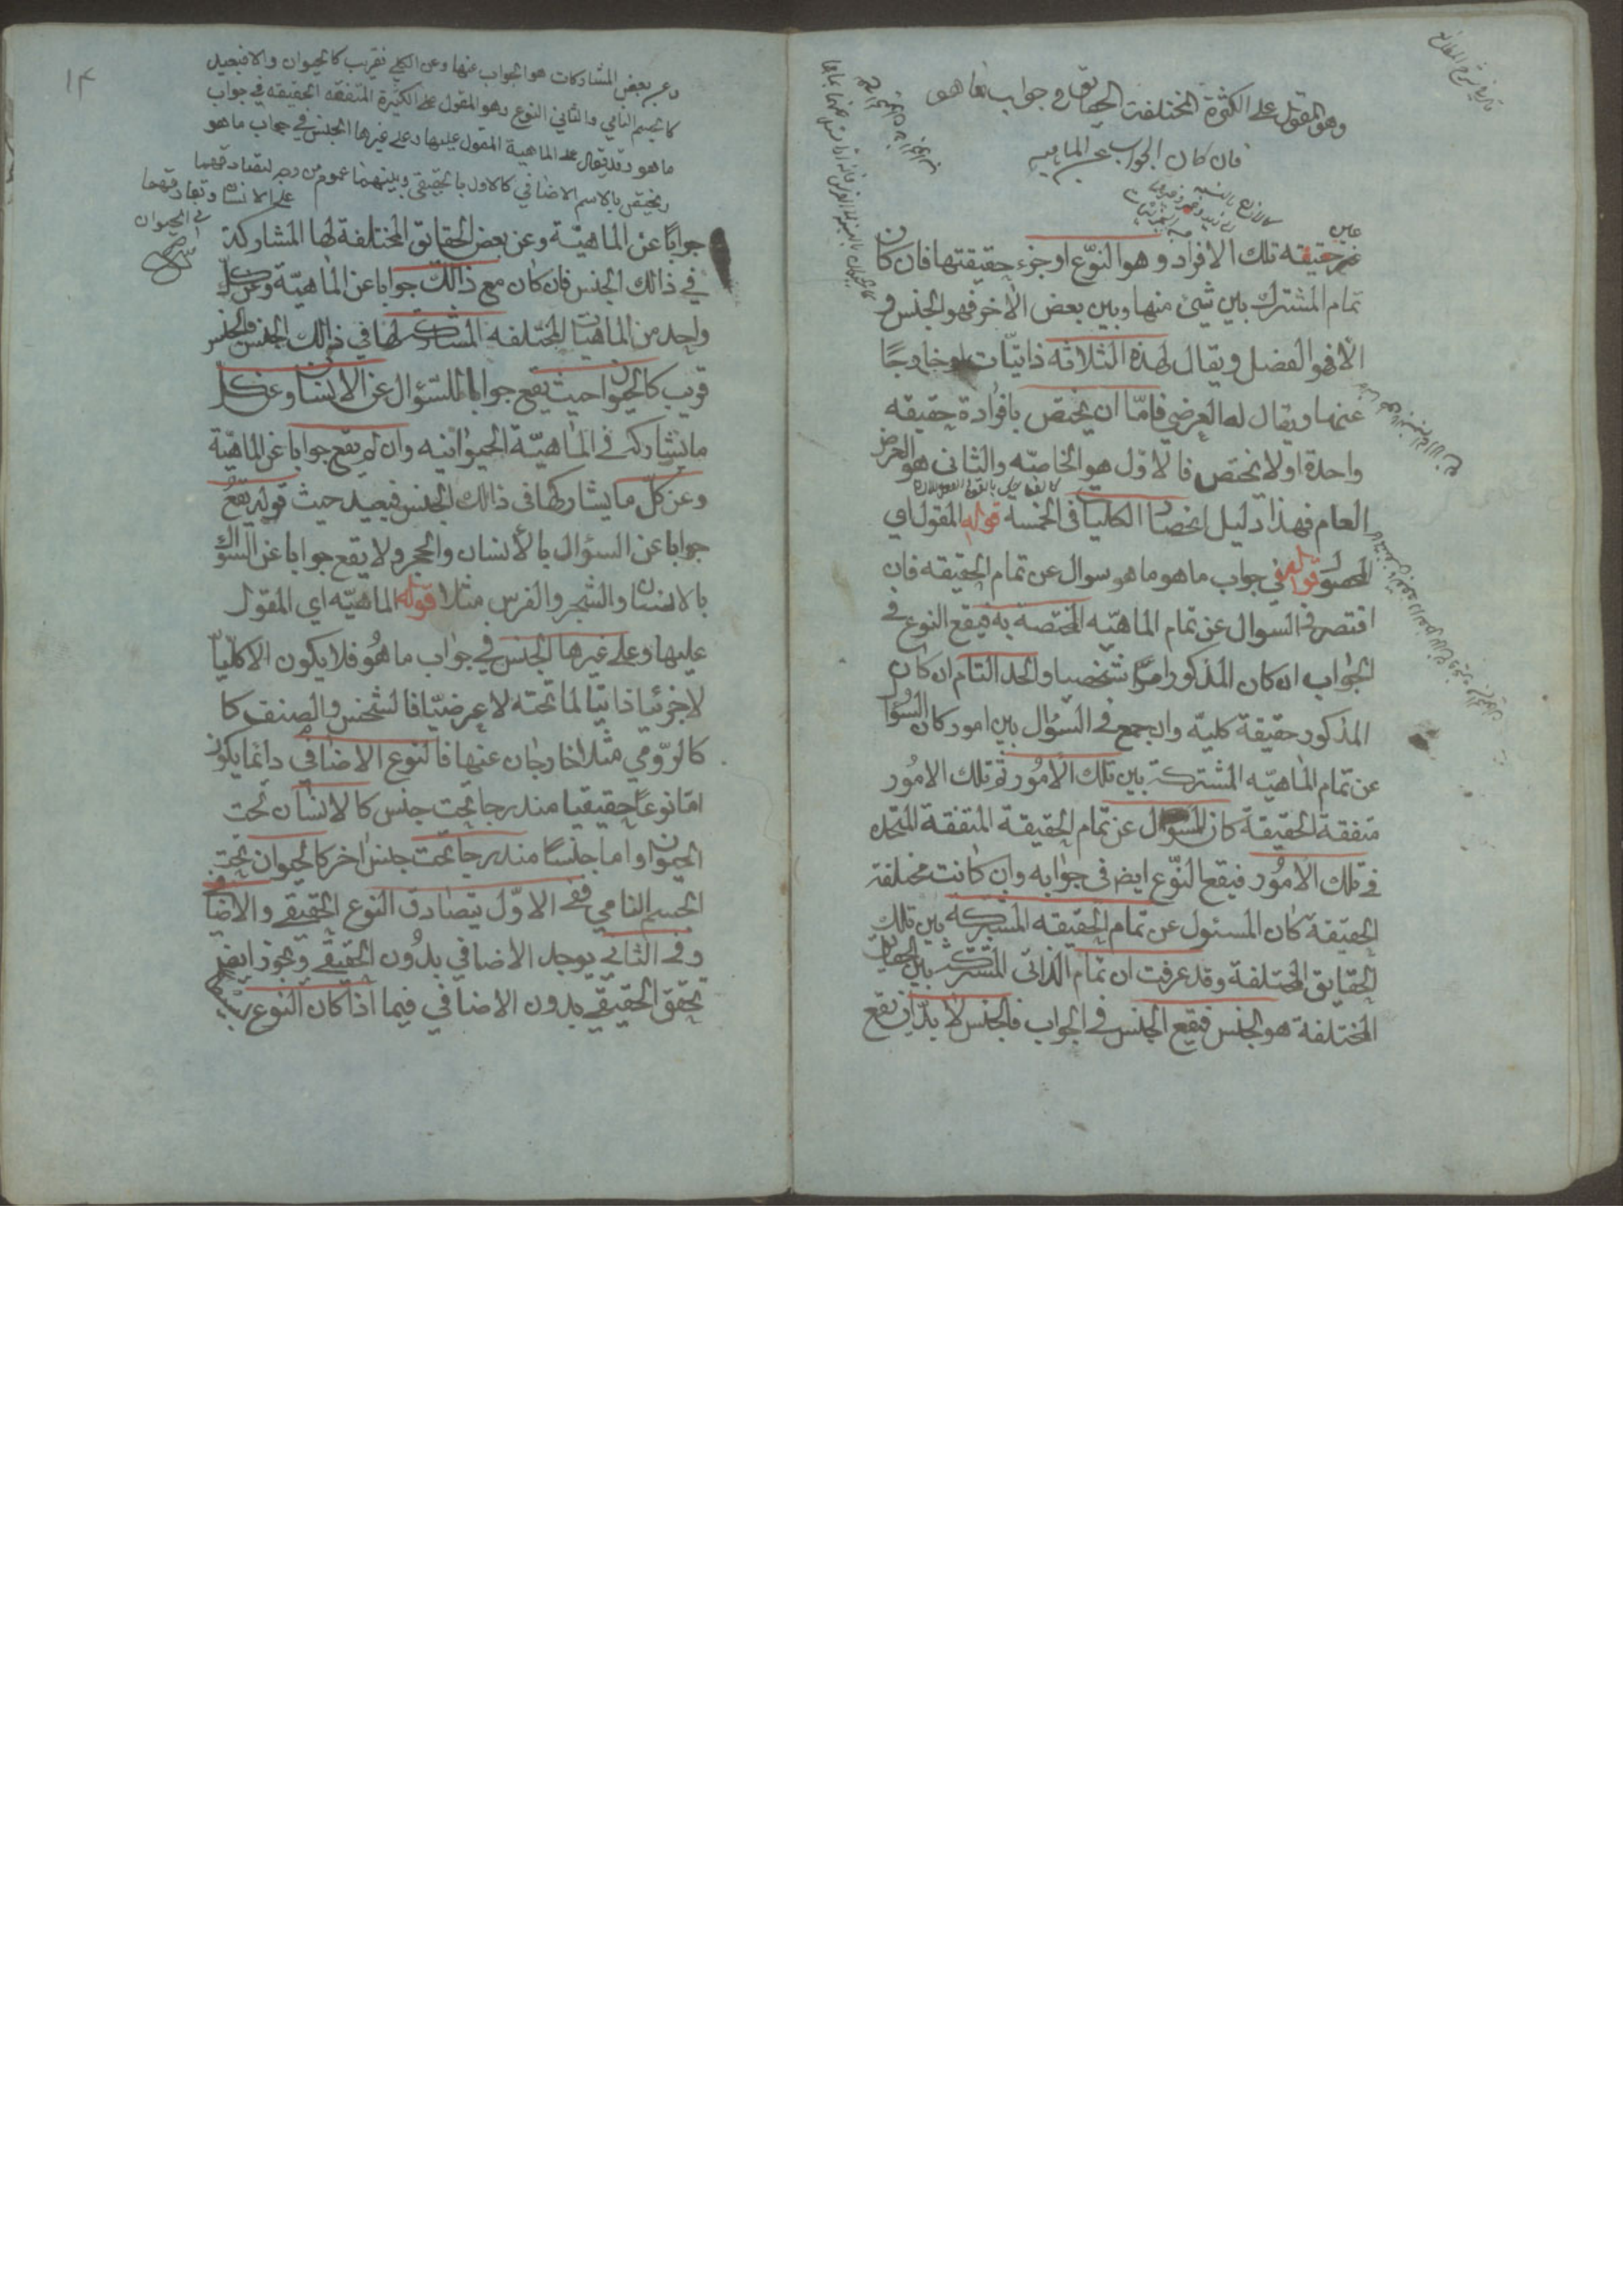 وهو المقول على الكثرة المختلفة الحقايق في جواب ما هو
فان كان الجواب عن الماهية
عين
حقيقه تلك الافراد وهو النوّع او جزء حقيقتها فان كان
تمام المشترك بين شئ منها وبين بعض الاخر فهو الجنس و
الّا فهو الفصل ويقال لهذه الثلاثه ذاتيّات او خارجًا
عنها ويقال له العرضي فامّا ان يختص بافراده حقيقه
واحدة او لا يختص فالاوّل هو الخاصّه والثانى هو العرض
العام فهذا دليل انحصار الكليات فى الخمسة قوله المقول اي
المحمول قوله في جواب ما هو ما هو سوال عن تمام الحقيقه فان
اقتصر فى السوال عن تمام الماهيّه المختصة به فيقع النوع فى
الجواب ان كان المذكور امرًا شخصيا والحد التام ان كان
المذكور حقيقة كليّه وان جمع فى السّؤال بين امور كان السؤال
عن تمام الماهيّه المشتركة بين تلك الامُور ثم تلك الامُور
متفقة الحقيقة كان السؤال عن تمام الحقيقة المتفقة المتحده
فى تلك الامُور فيقع النّوع ايض فى جوابه وان كانت مختلفة
الحقيقة كان المسئول عن تمام الحقيقه المشتركه بين تلك
الحقايق المختلفة وقد عرفت ان تمام الذاتى المشترك بين الحقايق
المختلفة هو الجنس فيقع الجنس فى الجواب فالجنس لا بدّ ان يقع
١٤
وعن بعض المشاركات هو الجواب عنها وعن الكل فقريب كالحيوان والا فبعيد
كالجسم النامي والثاني النوع وهو المقول على الكثيرة المتفقة الحقيقه في جواب
ما هو وقد يقال على الماهية المقول عليها وعلى غيرها الجنس في جواب ما هو
ويختص بالاسم الاضافي كالاول بالحقيقي وبينهما عموم من وجه لتصادقهما
على الانسان وتفارقهما
في الحيوان
جوابًا عن الماهيّة وعن بعض الحقايق المختلفة لها المشاركة
في ذالك الجنس فان كان مع ذالك جوابا عن الماهيّة وعن كل
واحد من الماهيّات المختلفه المشاركة لها في ذالك الجنس فالجنس
قريب كالحيوان حيث يقع جوابا للسّؤال عن الانسان وعن كل
ما يشاركه في الماهيّة الحيوانيه وان لم يقع جوابا عن الماهيّة
وعن كلّ ما يشاركها فى ذالك الجنس فبعيد حيث قوله يقع
جوابا عن السؤال بالأنسان والحجر ولا يقع جوابا عن السؤال
بالانسان والشجر والفرس مثلا قوله الماهيّه اي المقول
عليها وعلى غيرها الجنس في جواب ما هُو فلا يكون الا كليّا
لا جزئيا ذاتيا لما تحته لا عرضيّا فالشخص والصنف كا
كالرّومي مثلا خارجان عنها فالنوع الاضافي دائما يكون
امّا نوعًا حقيقيا مندرجا تحت جنس كالانسان تحت
الحيوان واما جنسًا مندرجا تحت جنس اخر كالحيوان تحت
الجسم النامي ففي الاوّل يتصادق النوع الحقيقي والاضافي
وفى الثاني يوجد الاضافي بدُون الحقيقي ويجوز ايض
تحقق الحقيقي بدون الاضافي فيما اذا كان النوع بسيطا